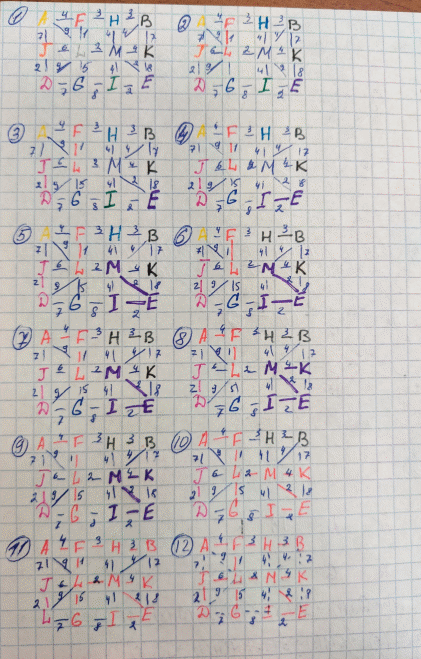 ① A 4 F 3 H 3 B
7 9 11 4 4 17
J 6 L 2 M 4 K
2 9 15 4 2 18
D 7 G 8 I 2 E
② A 4 F 3 H 3 B
7 9 11 4 4 17
J 6 L 2 M 4 K
2 9 15 4 2 18
D 7 G 8 I 2 E
③ A 4 F 3 H 3 B
7 9 11 4 4 17
J 6 L 2 M 4 K
2 9 15 4 2 18
D 7 G 8 I 2 E
④ A 4 F 3 H 3 B
7 9 11 4 4 17
J 6 L 2 M 4 K
2 9 15 4 18
D 7 G 8 I 2 E
⑤ A 4 F 3 H 3 B
7 9 11 4 4 17
J 6 L 2 M 4 K
2 9 15 4 18
D 7 G 8 I 2 E
⑥ A 4 F 3 H 3 B
7 9 11 4 4 17
J 6 L 2 M 4 K
2 9 15 4 18
D 7 G 8 I 2 E
⑦ A 4 F 3 H 3 B
7 9 11 4 4 17
J 6 L 2 M 4 K
2 9 15 4 2 18
D 7 G 8 I 2 E
⑧ A 4 F 3 H 3 B
7 9 11 4 4 17
J 6 L 2 M 4 K
2 9 15 4 2 18
D 7 G 8 I 2 E
⑨ A 4 F 3 H 3 B
7 9 11 4 4 17
J 6 L 2 M 4 K
2 9 15 4 2 18
D 7 G 8 I 2 E
⑩ A 4 F 3 H 3 B
7 9 11 4 4 17
J 6 L 2 M 4 K
2 9 15 4 2 18
D 7 G 8 I 2 E
⑪ A 4 F 3 H 3 B
7 9 11 4 4 17
J 6 L 2 M 4 K
2 9 15 4 2 18
L 7 G 8 I 2 E
⑫ A 4 F 3 H 3 B
7 9 11 4 4 17
J 6 L 2 M 4 K
2 9 15 4 2 18
D 7 G 8 I 2 E